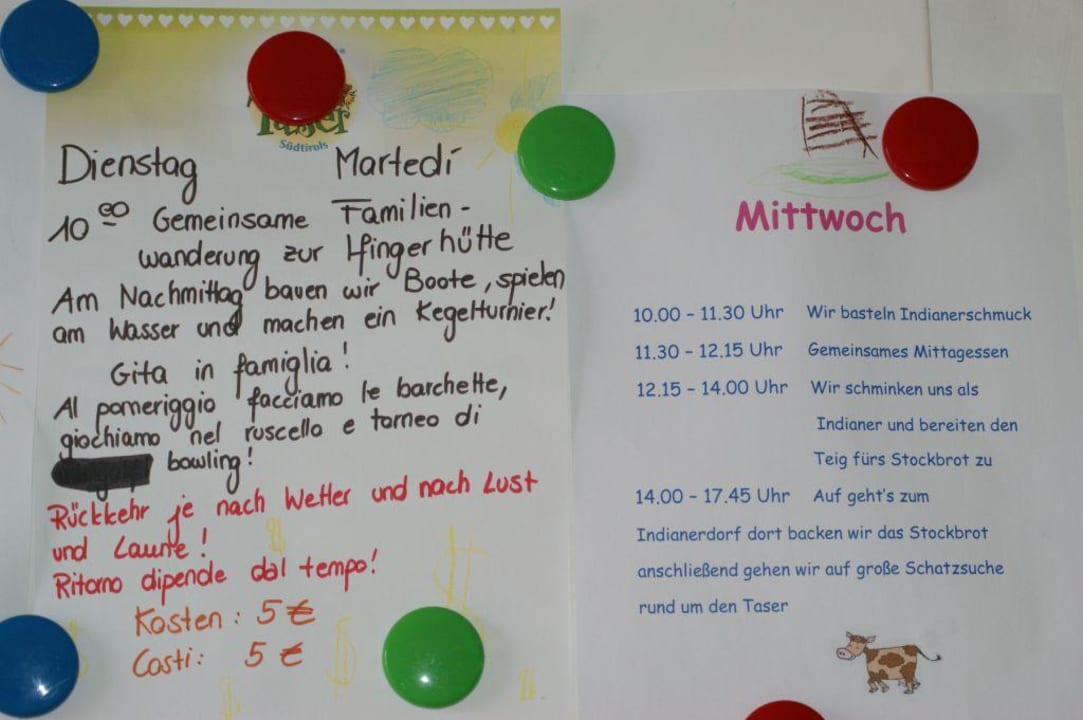 Taser
Südtirols
Dienstag Martedí
10 00 Gemeinsame Familien-
wanderung zur Ifingerhütte
Am Nachmittag bauen wir Boote, spielen
am Wasser und machen ein Kegelturnier!
Gita in famiglia!
Al pomeriggio facciamo le barchette,
giochiamo nel ruscello e torneo di
bowling!
Rückkehr je nach Wetter und nach Lust
und Laune!
Ritorno dipende dal tempo!
Kosten: 5 €
Costi: 5 €
Mittwoch
10.00 - 11.30 Uhr Wir basteln Indianerschmuck
11.30 - 12.15 Uhr Gemeinsames Mittagessen
12.15 - 14.00 Uhr Wir schminken uns als
Indianer und bereiten den
Teig fürs Stockbrot zu
14.00 - 17.45 Uhr Auf geht's zum
Indianerdorf dort backen wir das Stockbrot
anschließend gehen wir auf große Schatzsuche
rund um den Taser